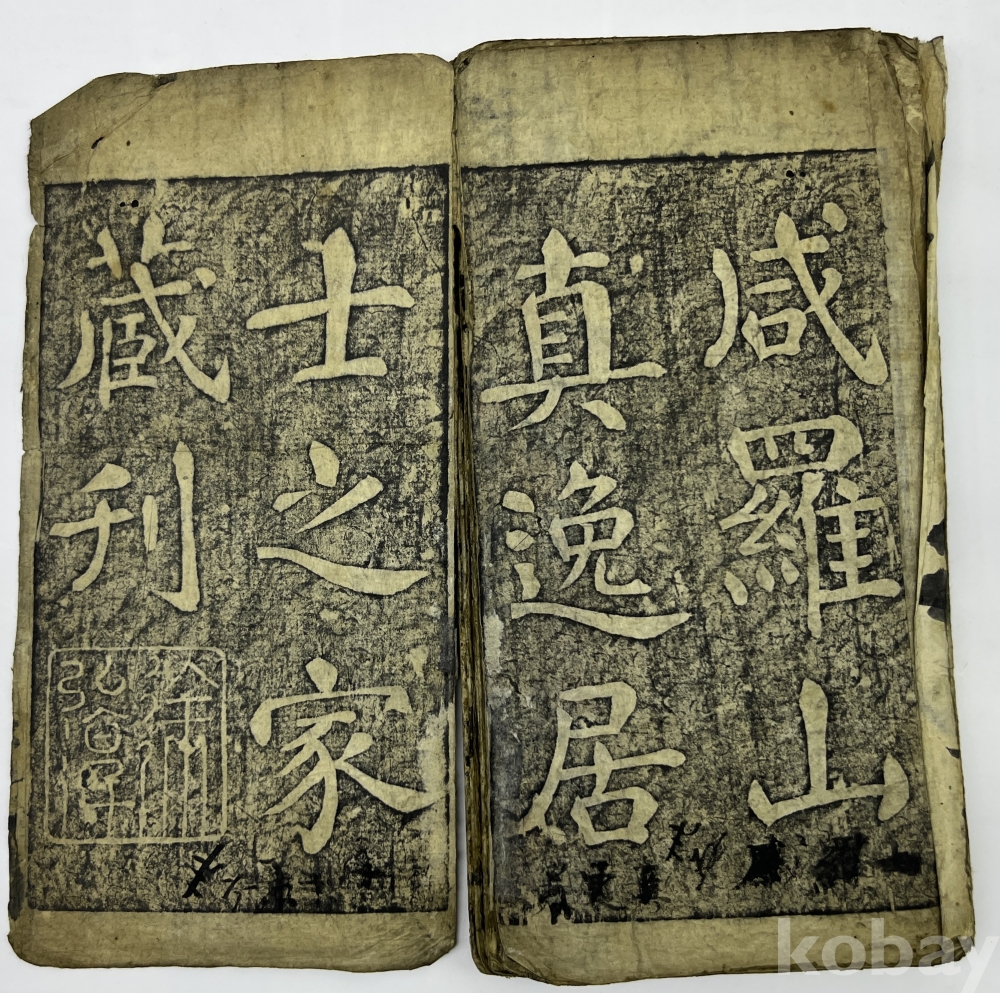 咸羅山
真逸居
士之家
藏刊
kobay